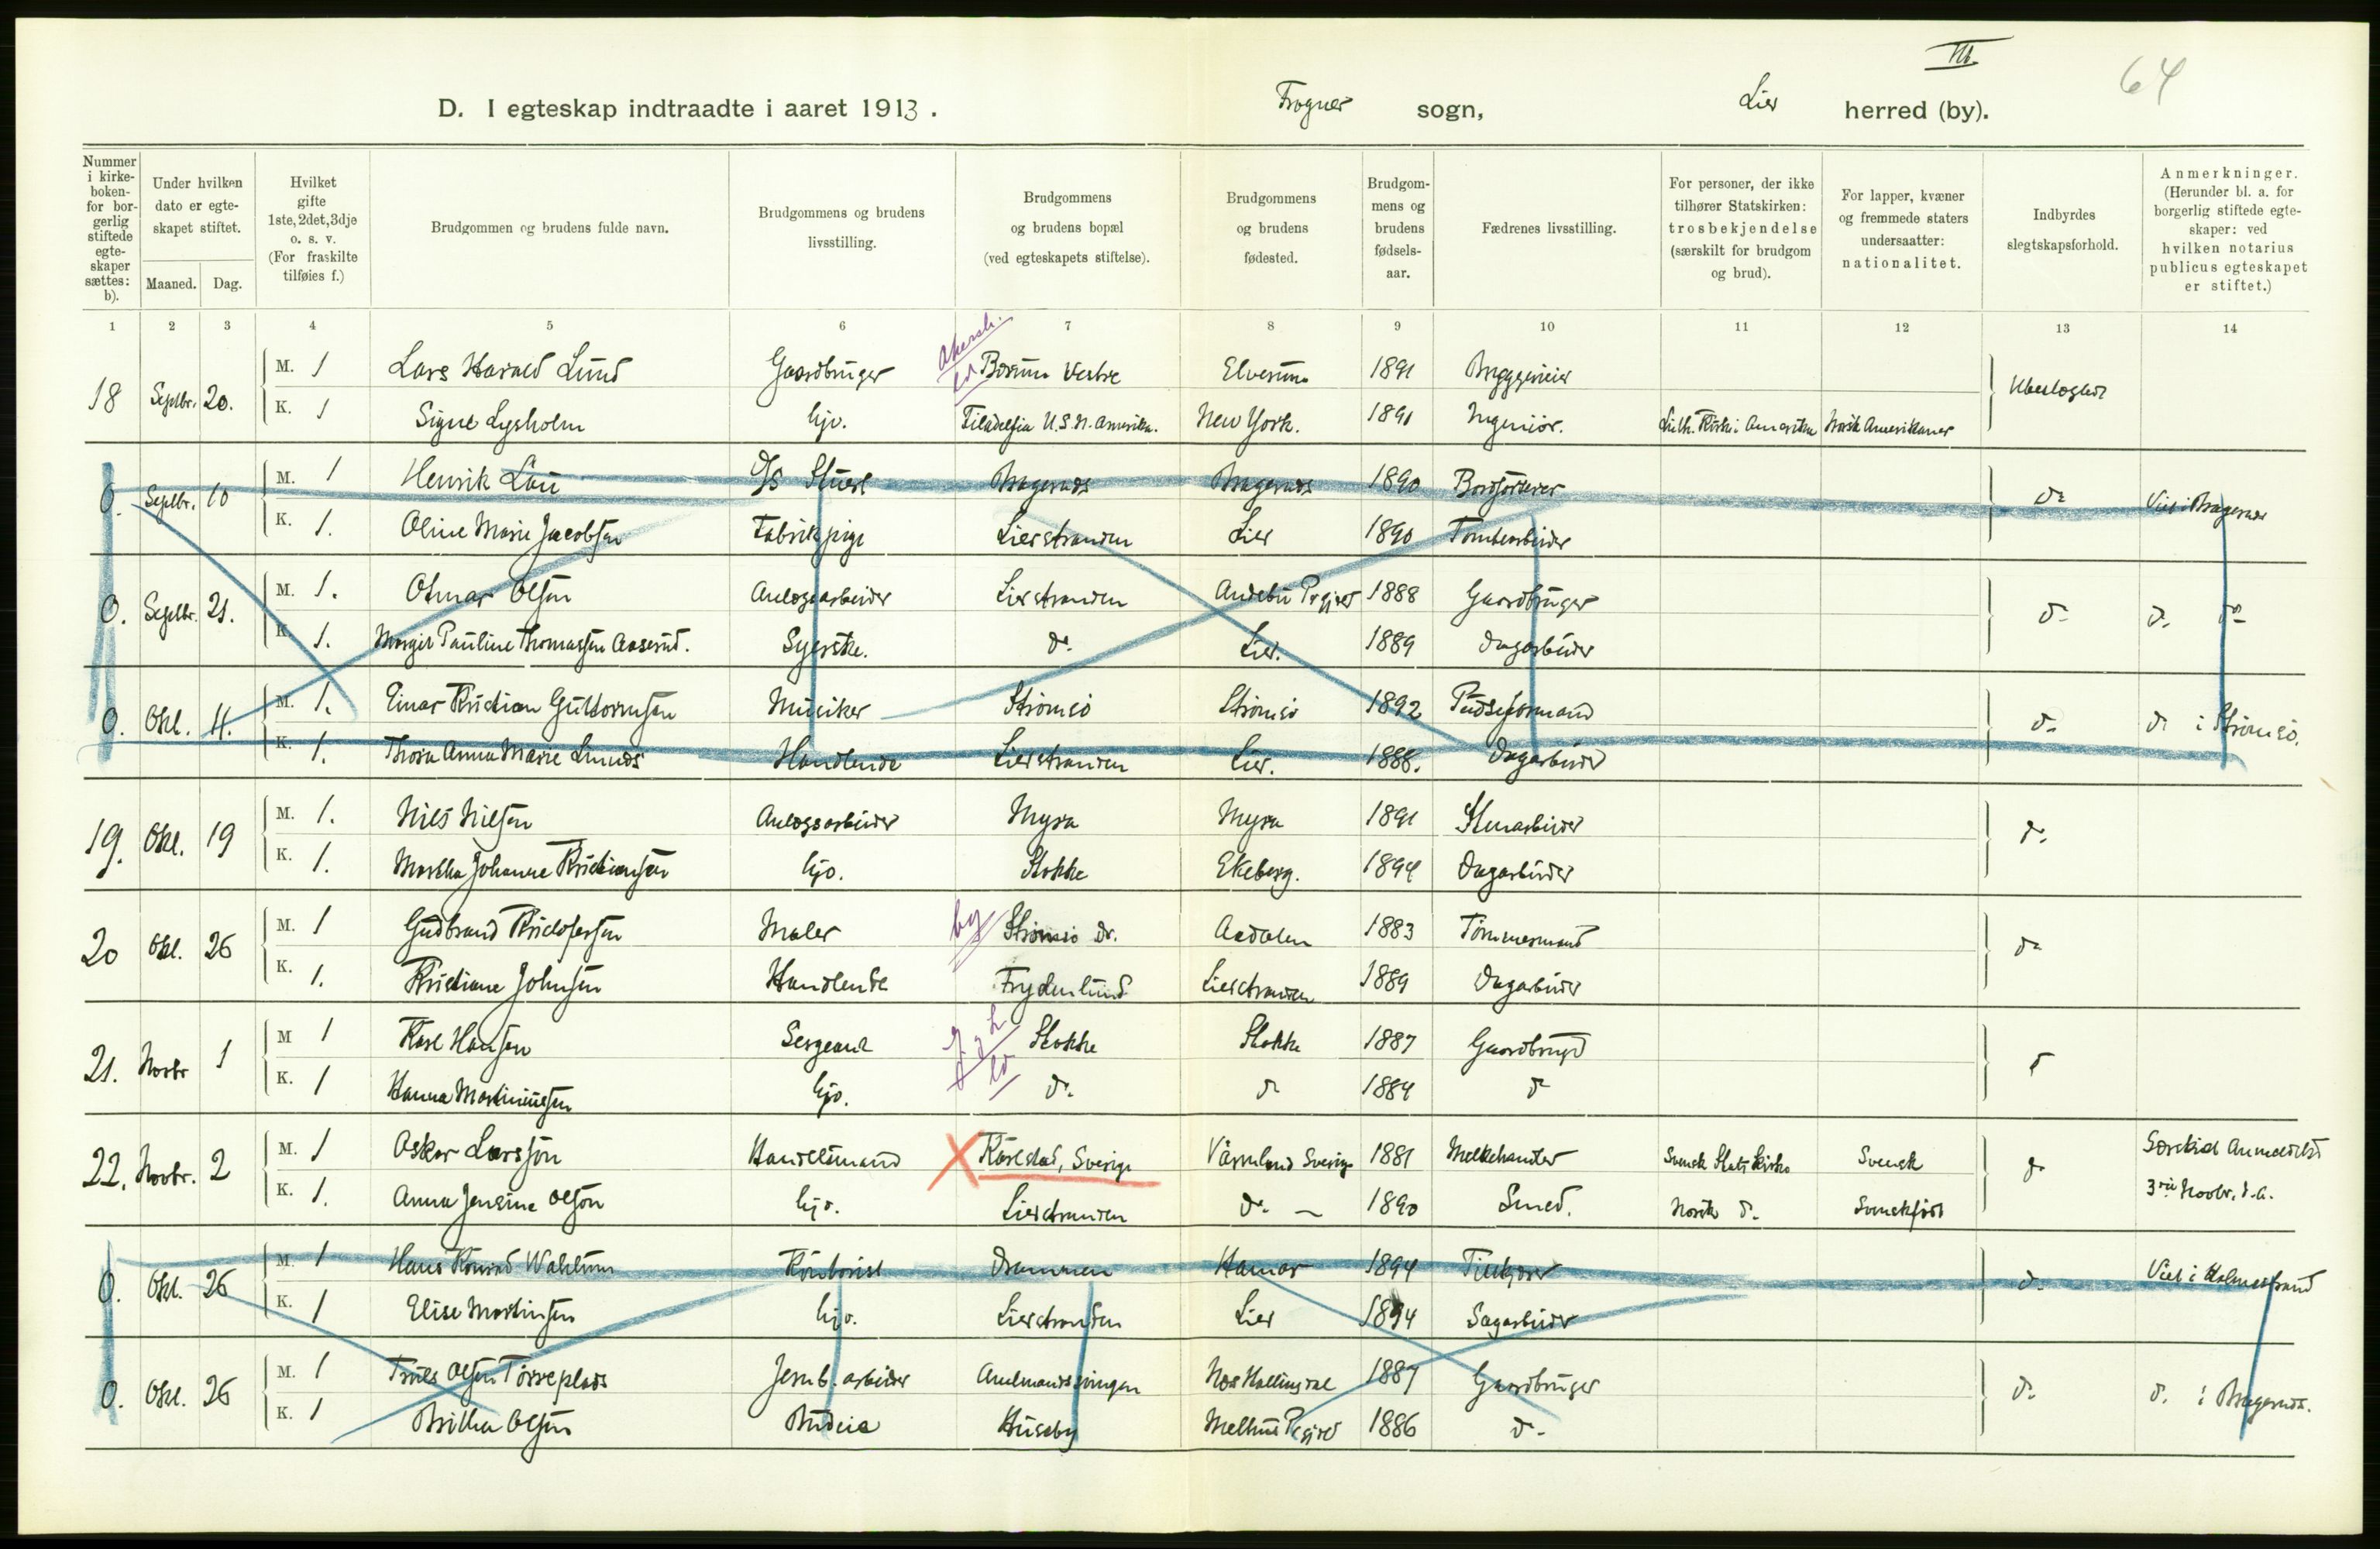 III.
64
D. I egteskap indtraadte i aaret 1913. Frogner sogn, Lier herred (by).
Nummer i kirkeboken- for borgerlig stiftede egteskaper sættes: b).
Under hvilken dato er egteskapet stiftet.
Maaned. Dag.
Hvilket gifte 1ste, 2det, 3dje o. s. v. (For fraskilte tilføies f.)
Brudgommen og brudens fulde navn.
Brudgommens og brudens livsstilling.
Brudgommens og brudens bopæl (ved egteskapets stiftelse).
Brudgommens og brudens fødested.
Brudgommens og brudens fødselsaar.
Fædrenes livsstilling.
For personer, der ikke tilhører Statskirken: trosbekjendelse (særskilt for brudgom og brud).
For lapper, kvæner og fremmede staters undersaatter: nationalitet.
Indbyrdes slegtskapsforhold.
Anmerkninger. (Herunder bl. a. for borgerlig stiftede egteskaper: ved hvilken notarius publicus egteskapet er stiftet.)
1 2 3 4 5 6 7 8 9 10 11 12 13 14
18 Septbr. 20. M. 1 Lars Harald Lund Gaardbruger Bærum Vestre Elverum 1891 Ubeslegtede
K. 1 Signe Lysholm hjv. Filadelfia U.S.N. Amerika. New York. 1891 Ingeniør. Luth. Kirke i Amerika Norsk Amerikaner
0. Septbr. 10 M. 1 Henrik Lau Bragernes Bragernes 1890 do Viet i Bragernes
K. 1. Oline Marie Jacobsen Fabrikpige Lierstranden Lier 1890 Tomtearbeider
0. Septbr. 21. M. 1. Otmar Olsen Anlægsarbeider Lierstranden Andebu Prgjeld 1888 Gaardbruger do do do
K. 1. Margit Pauline Thomassen Aaserud. Syerske. do Lier. 1889 Dagarbeider
0. Okt. 4. M. 1. Einar Kristian Guttormsen Musiker Strømsø Strømsø 1892 do do i Strømsø.
K. 1. Thora Anna Marie Lunds Handlende Lierstranden Lier. 1888. Dagarbeider
19. Okt. 19 M. 1. Nils Nilsen Anlægsarbeider Myra Myra 1891 Stenarbeider do
K. 1. Martha Johanne Kristiansen hjv. Stokke Ekeberg. 1894 Dagarbeider
20 Okt. 26 M. 1 Gudbrand Kristofersen Maler by Strømsø Dr. Aadalen 1883 Tømmermand do
K. 1. Kristiane Johnsen Handlende Frydenlund Lierstranden 1889 Dagarbeider
21. Novbr 1 M 1 Karl Hansen Sergeant Stokke Stokke 1887 do
K. 1 Hanna Martiniussen hjv. do do 1884 do
22. Novbr. 2 M. 1 Oskar Larsson Handelsmand X Karlstad, Sverige Värmland Sverige 1881 Melkehandler Svensk Statskirke Svensk do Særskild Anmeldelse
K. 1. Anna Jensine Olsson hjv. Lierstranden do — 1890 Smed. Norsk do. Svenskfødt 3die Novbr. d. a.
0. Okt. 26 M. 1 Hans Konrad Wahlum Kontorist Drammen Hamar 1894 do Viet i Holmestrand
K. 1 Elise Martinsen hjv. Lierstranden Lier 1894 Sagarbeider
0. Okt. 26 M. 1 Truls Olsen Tørreplads Jernb. arbeider Amtmandsvingen Nes Hallingdal 1887 Gaardbruger do do i Bragernes.
K. 1 Britha Olsen Budeie Huseby Melhus Prgjeld 1886 do